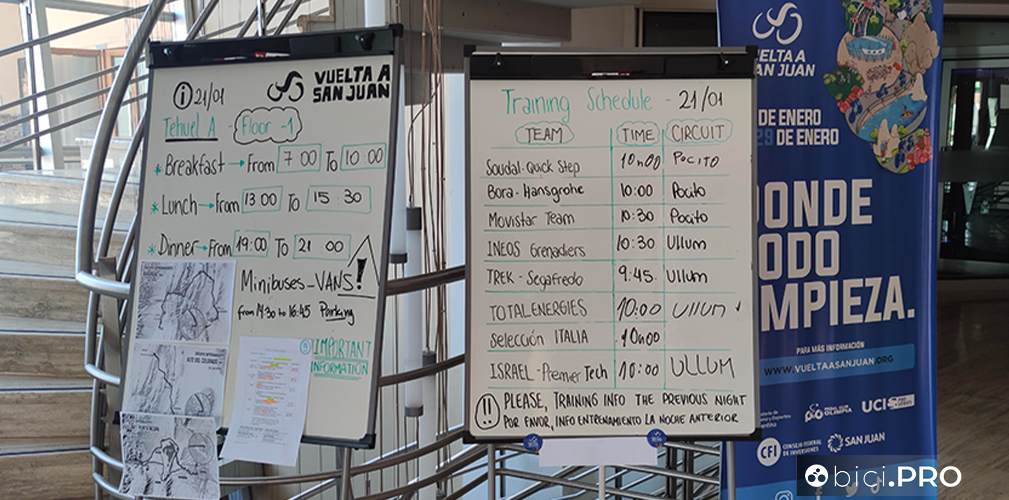 ⓘ 21/01
VUELTA A
SAN JUAN
Tehuel A Floor -1
* Breakfast → From 7 00 To 10:00
* Lunch → From 13 00 To 15:30
* Dinner → From 19:00 To 21 00
Minibuses - VANS!
from 14:30 to 16:45 Parking
!! IMPORTANT
INFORMATION
Training Schedule - 21/01
TEAM TIME CIRCUIT
Soudal-Quick Step 10h00 Pocito
Bora-Hansgrohe 10:00 Pocito
Movistar Team 10:30 Pocito
INEOS Grenadiers 10:30 Ullum
TREK - Segafredo 9:45. Ullum
TOTALENERGIES 10:00 Ullum
Selección ITALIA 10h00
ISRAEL - Premier Tech 10:00 ULLUM
!! PLEASE, TRAINING INFO THE PREVIOUS NIGHT
POR FAVOR, INFO ENTRENAMIENTO LA NOCHE ANTERIOR
VUELTA A
SAN JUAN
DE ENERO
29 DE ENERO
DONDE
ODO
MPIEZA.
PARA MÁS INFORMACIÓN
WWW.VUELTAASANJUAN.ORG
PEDAL CLUB
OLIMPIA
UCI
CFI CONSEJO FEDERAL
DE INVERSIONES
SAN JUAN
bici.PRO